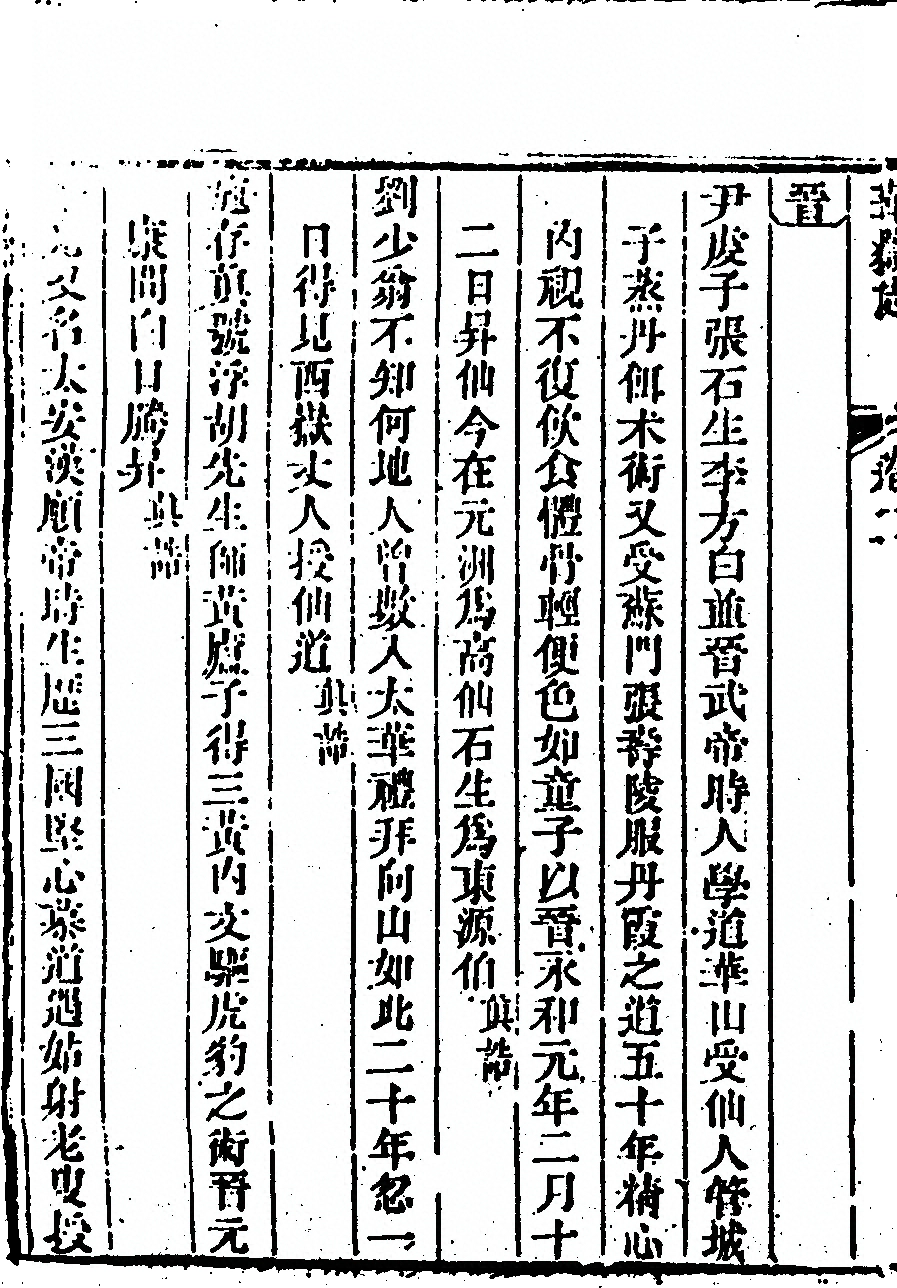 華嶽志 卷二
晉
尹虔子張石生李方白並晉武帝時人學道華山受仙人管城
子蒸丹餌术術又受蘇門張春陵服丹霞之道五十年精心
內視不復飲食體骨輕便色如童子以晉永和元年二月十
二日昇仙今在元洲爲高仙石生爲東源伯眞誥
劉少翁不知何地人曾數入太華禮拜向山如此二十年忽一
日得見西嶽丈人授仙道眞誥
施存眞號浮胡先生師黃廬子得三黃內文驅虎豹之術晉元
康間白日騰昇眞誥
又名太安漢順帝時生歷三國堅心慕道遇姑射老叟授